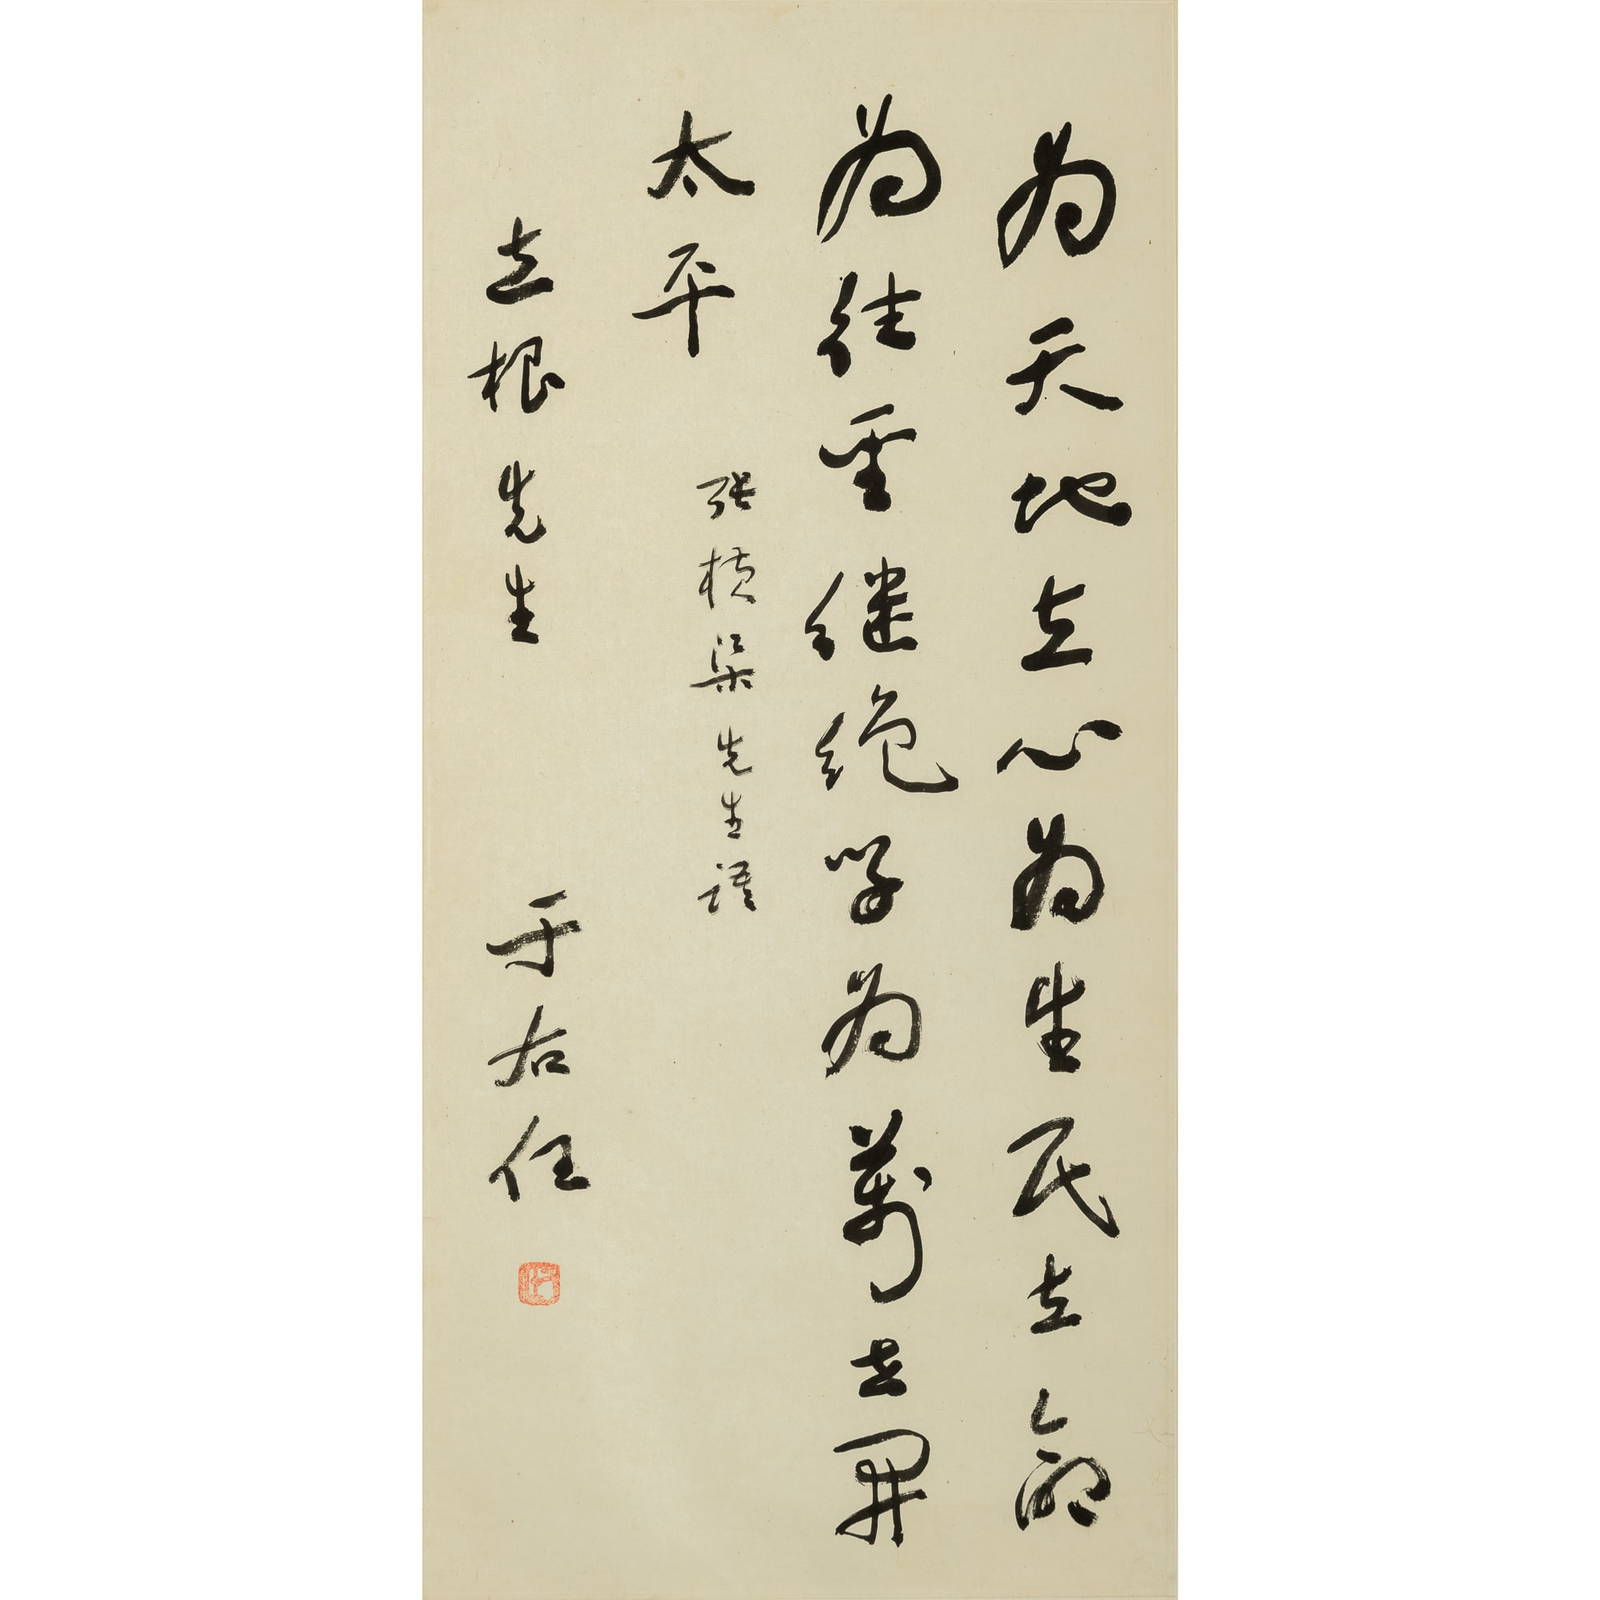 为天地立心为生民立命
为往圣继绝学为万世开
太平
张横渠先生语
立根先生
于右任